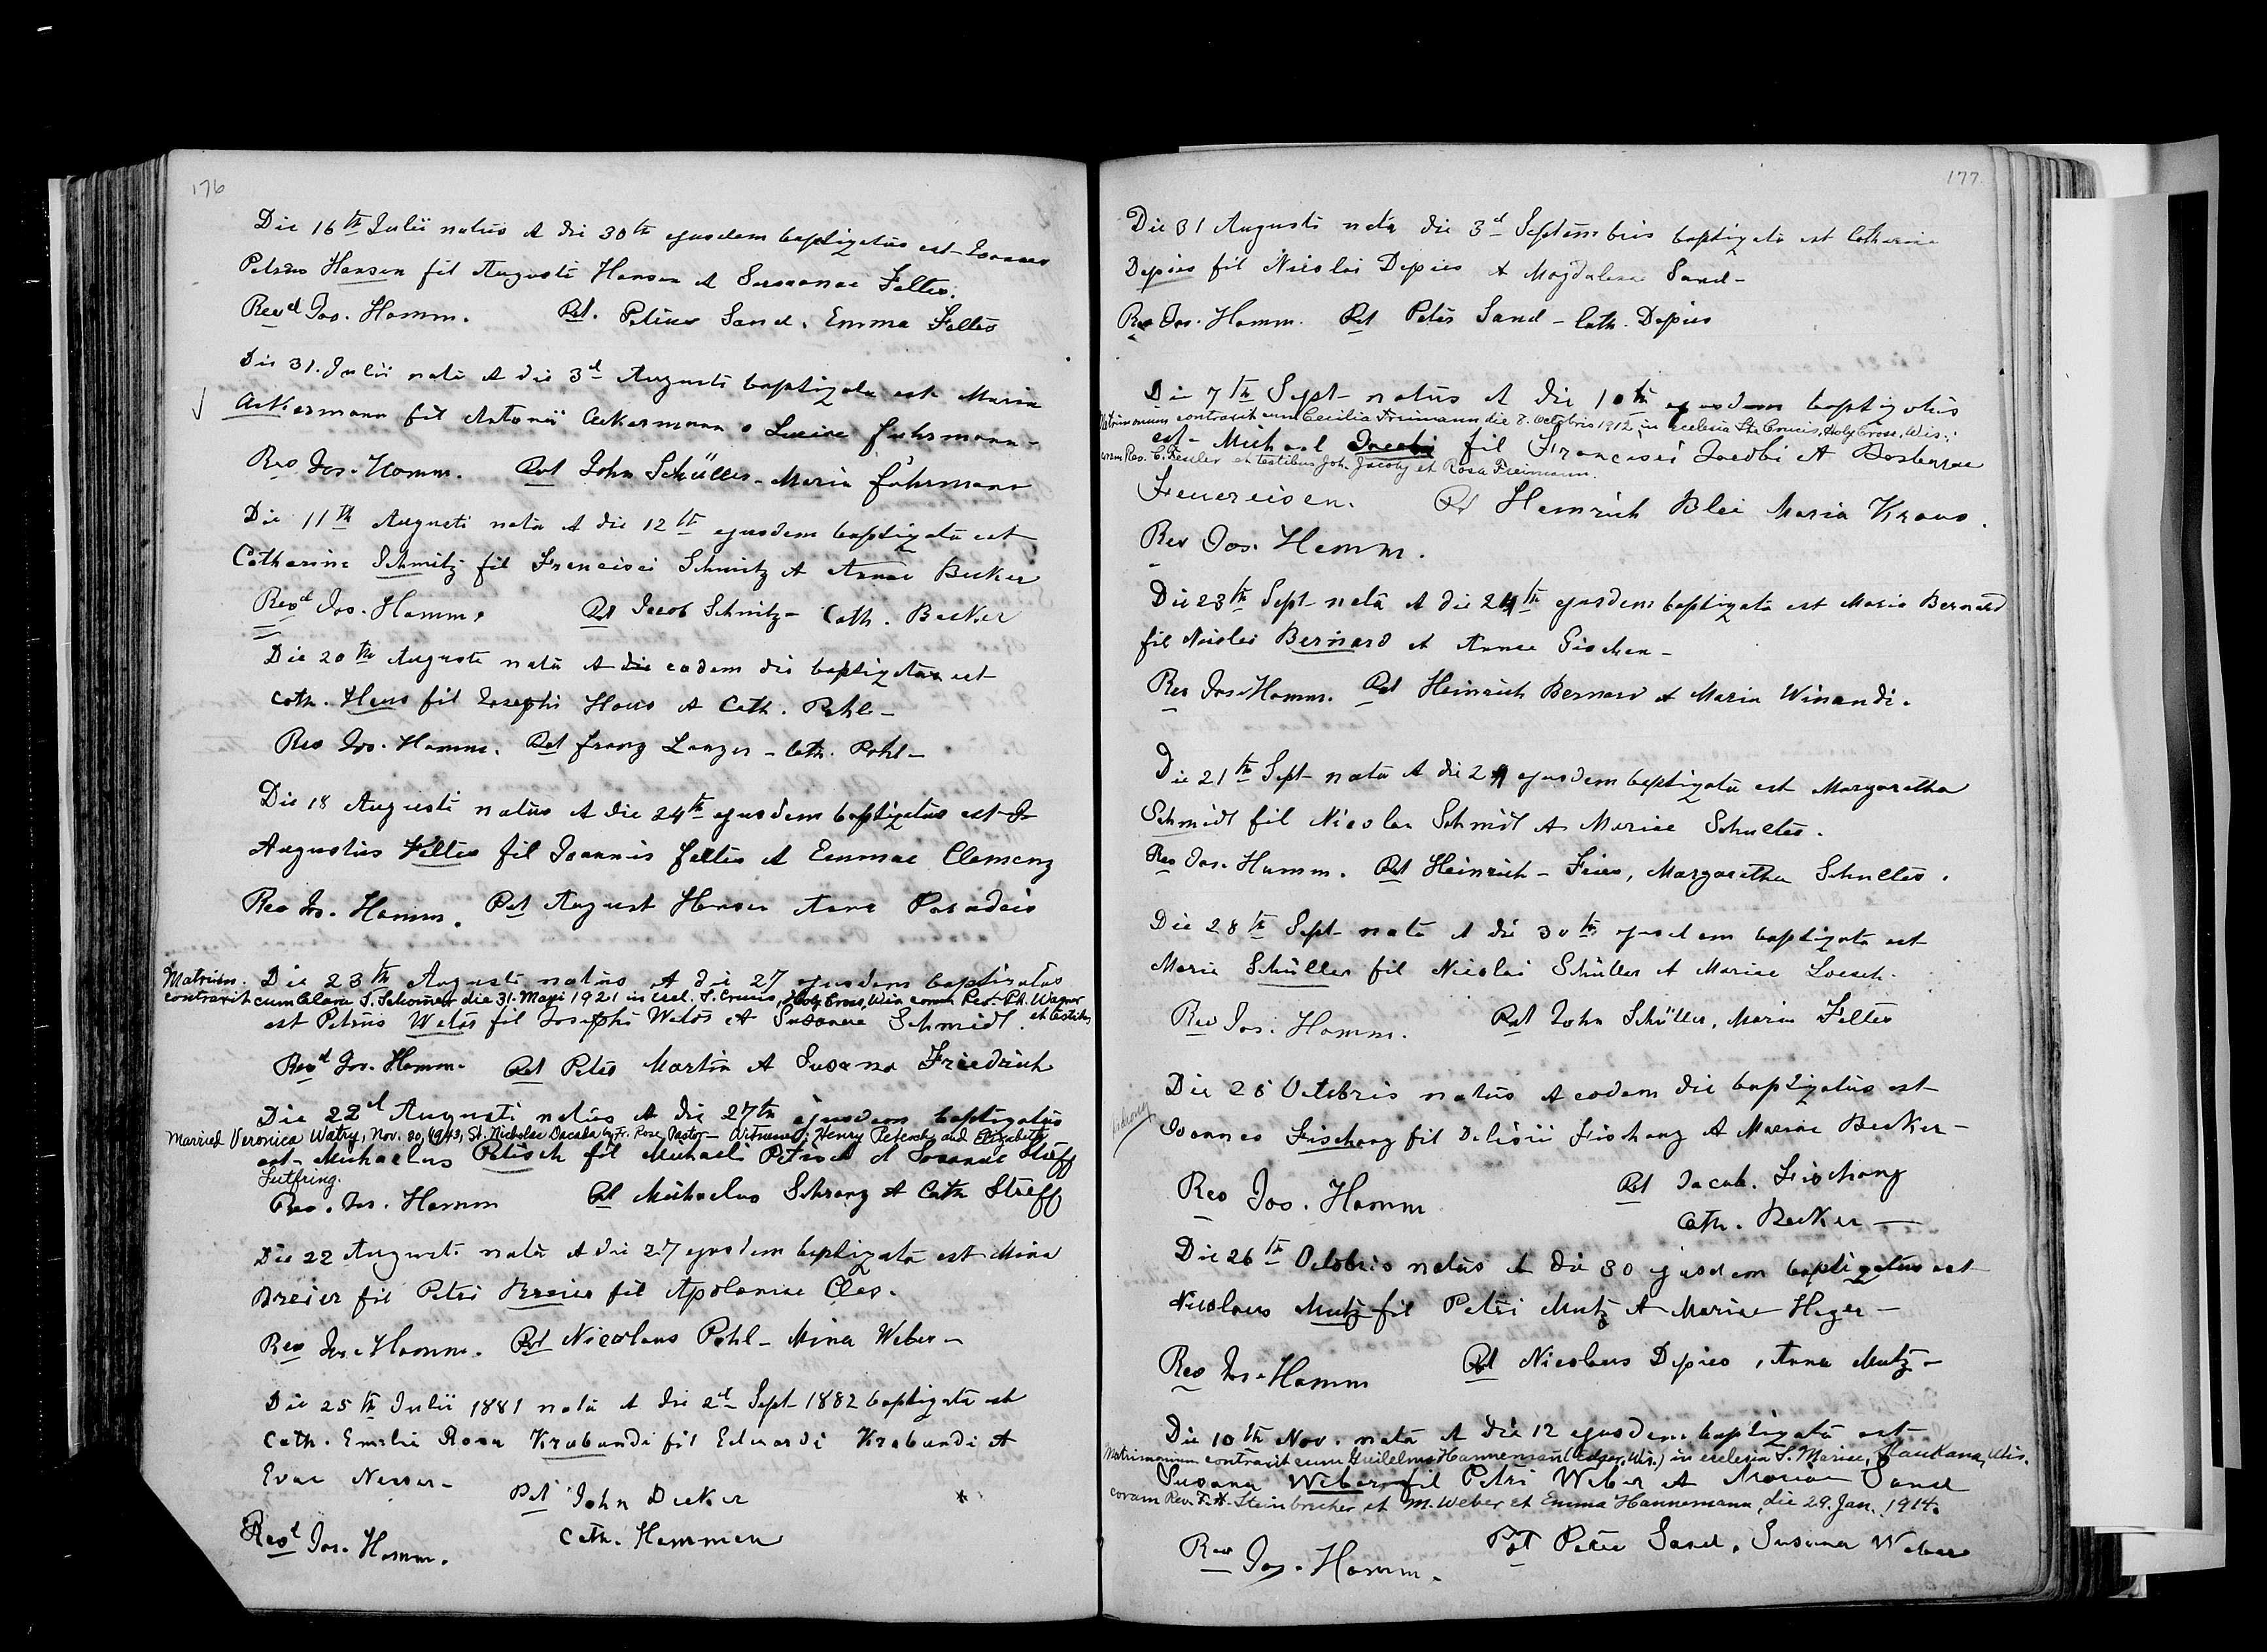 176
Die 16th Julii natus et die 30th ejusdem baptizatus est Joannes
Petrus Hansen fil Augusti Hansen et Susannae Feltes.
Revd Jos. Hamm. Pat. Petrus Sand. Emma Feltes
Die 31. Julii nata et die 3d Augusti baptizata est Maria
Ackermann fil Antonii Ackermann & Luciae Fuhrmann-
Rev Jos. Hamm. Pat John Schüller - Maria Fuhrmann
Die 11th Augusti nata et die 12th ejusdem baptizata est
Catharina Schmitz fil Francisci Schmitz et Annae Becker
Revd Jos. Hamm. Pat Jacob Schmitz - Cath. Becker
Die 20th Augusti nata et die eodem die baptizata est
Cath. Haus fil Josephi Haus et Cath. Pohl-
Rev Jos. Hamm. Pat Franz Langer - Cath. Pohl-
Die 18 Augusti natus et die 24th ejusdem baptizatus est
Augustus Feltes fil Joannis Feltes et Emmae Clemenz
Rev Jos. Hamm. Pat August Hansen Anna Paradeis
Die 23th Augusti natus et die 27 ejusdem baptizatus
Matrim. contraxit cum Clara S. Schomer die 31. Maji 1921 in eccl. S. Crucis, Holy Cross, Wis coram Rev. Ph. Wagner et testibus
est Petrus Wetor fil Josephi Wetor et Susanae Schmidt.
Revd Jos. Hamm. Pat Peter Martin et Susana Friedrich
Die 22d Augusti natus et die 27th ejusdem baptizatus
Married Veronica Watry, Nov. 20, 1943, St. Nicholas Dacada by Fr. Rose, Pastor - Witnesses: Henry Petesch and Elizabeth
est Michaelus Petesch fil Michaeli Petesch et Susanae Streff
Sutfring.
Rev. Jos. Hamm Pat Michaelus Schranz et Cath Streff
Die 22 Augusti nata et die 27 ejusdem baptizata est Mina
Breier fil Petri Breier fil Apoloniae Cles.
Rev Jos. Hamm. Pat Nicolaus Pohl - Mina Weber-
Die 25th Julii 1881 nata et die 2d Sept 1882 baptizata est
Cath. Emelie Rosa Krabandi fil Eduardi Krabandi et
Evae Nesser-
Pat John Decker
Revd Jos. Hamm. Cath. Hemmen
177
Die 31 Augusti nata die 3d Septembris baptizata est Catharina
Depies fil Nicolai Depies et Magdalena Sand-
Rev Jos. Hamm. Pat Peter Sand - Cath. Depies
Die 7th Sept natus et die 10th ejusdem baptizatus
Matrimonium contraxit cum Cecilia Freimann die 8. Octobris 1912, in ecclesia Stae Crucis, Holy Cross, Wis.;
est Michael Jacobi fil Francisci Jacobi et Barbarae
coram Rev. C. Fessler et testibus Joh. Jacoby et Rosa Freimann.
Feuereisen. Pat Heinrich Blei Maria Kraus.
Rev Jos. Hamm.
Die 23th Sept nata et die 24th ejusdem baptizata est Maria Bernard
fil Nicolai Bernard et Annae Gischen-
Rev Jos. Hamm. Pat Heinrich Bernard et Maria Winandi.
Die 21th Sept nata et die 24 ejusdem baptizata est Margaretha
Schmidt fil Nicolai Schmidt et Mariae Schultes.
Rev Jos. Hamm. Pat Heinrich - Fries, Margaretha Schultes.
Die 28th Sept nata et die 30th ejusdem baptizata est
Maria Schüller fil Nicolai Schüller et Mariae Loesch.
Rev Jos. Hamm. Pat John Schüller, Maria Feltes
Die 28 Octobris natus et eodem die baptizatus est
Joannes Fischang fil Delisii Fischang et Mariae Becker-
Rev Jos. Hamm Pat Jacob. Fischang
Cath. Becker-
Die 26th Octobris natus et die 30 ejusdem baptizatus est
Nicolaus Mutz fil Petri Mutz et Mariae Heger-
Rev Jos. Hamm Pat Nicolaus Depies, Anna Mutz-
Die 10th Nov. nata et die 12 ejusdem baptizata est
Matrimonium contraxit cum Guilelmo Hannemann (Edgar, Wis.) in ecclesia S. Mariae, Kaukana, Wis.
Susana Weber fil Petri Weber et Mariae Sand
coram Rev. F. X. Steinbrecher et M. Weber et Emma Hannemann, die 29. Jan. 1914.
Rev Jos. Hamm. Pat Peter Sand, Susanna Weber